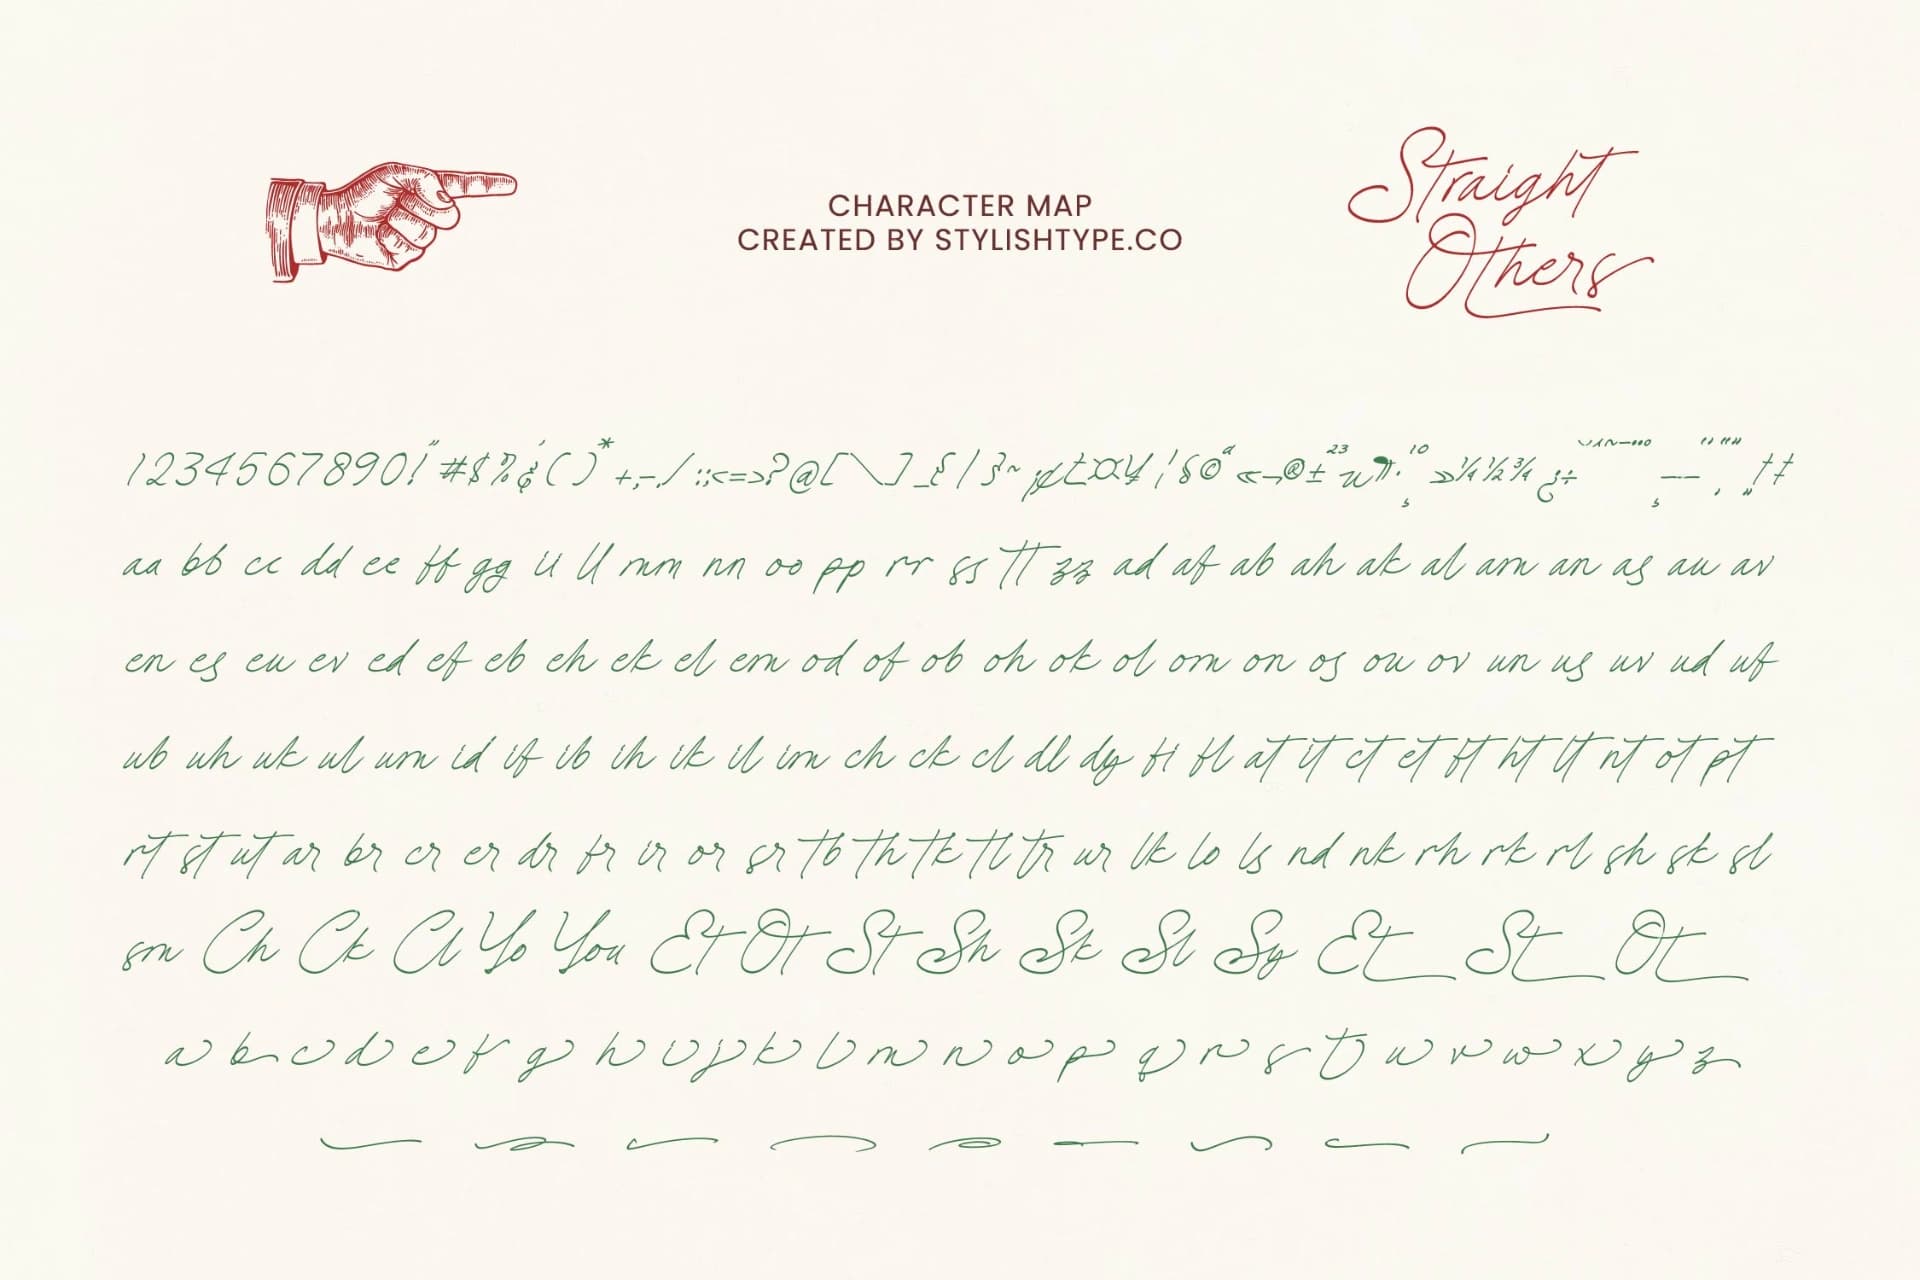 CHARACTER MAP
CREATED BY STYLISHTYPE.CO
Straight
Others
1234567890!"#$%&'()*+,-./:;<=>?@[\]_{|}~¡¢£¤¥¦§©ª«¬®±²³µ¶·¸¹º»¼½¾¿÷
aa bb cc dd ee ff gg ii ll mm nn oo pp rr ss tt zz ad af ab ah ak al am an as au av
en es eu ev ed ef eb eh ek el em od of ob oh ok ol om on os ou ov un us uv ud uf
ub uh uk ul um id if ib ih ik il im ch ck cl dl dy fi fl at it ct et ft ht lt nt ot pt
rt st ut ar br cr er dr fr ir or sr tb th tk tl tr ur lk lo ls nd nk rh rk rl sh sk sl
sm Ch Ck Cl Yo You Et Ot St Sh Sk Sl Sy Et St Ot
a b c d e f g h i j k l m n o p q r s t u v w x y z